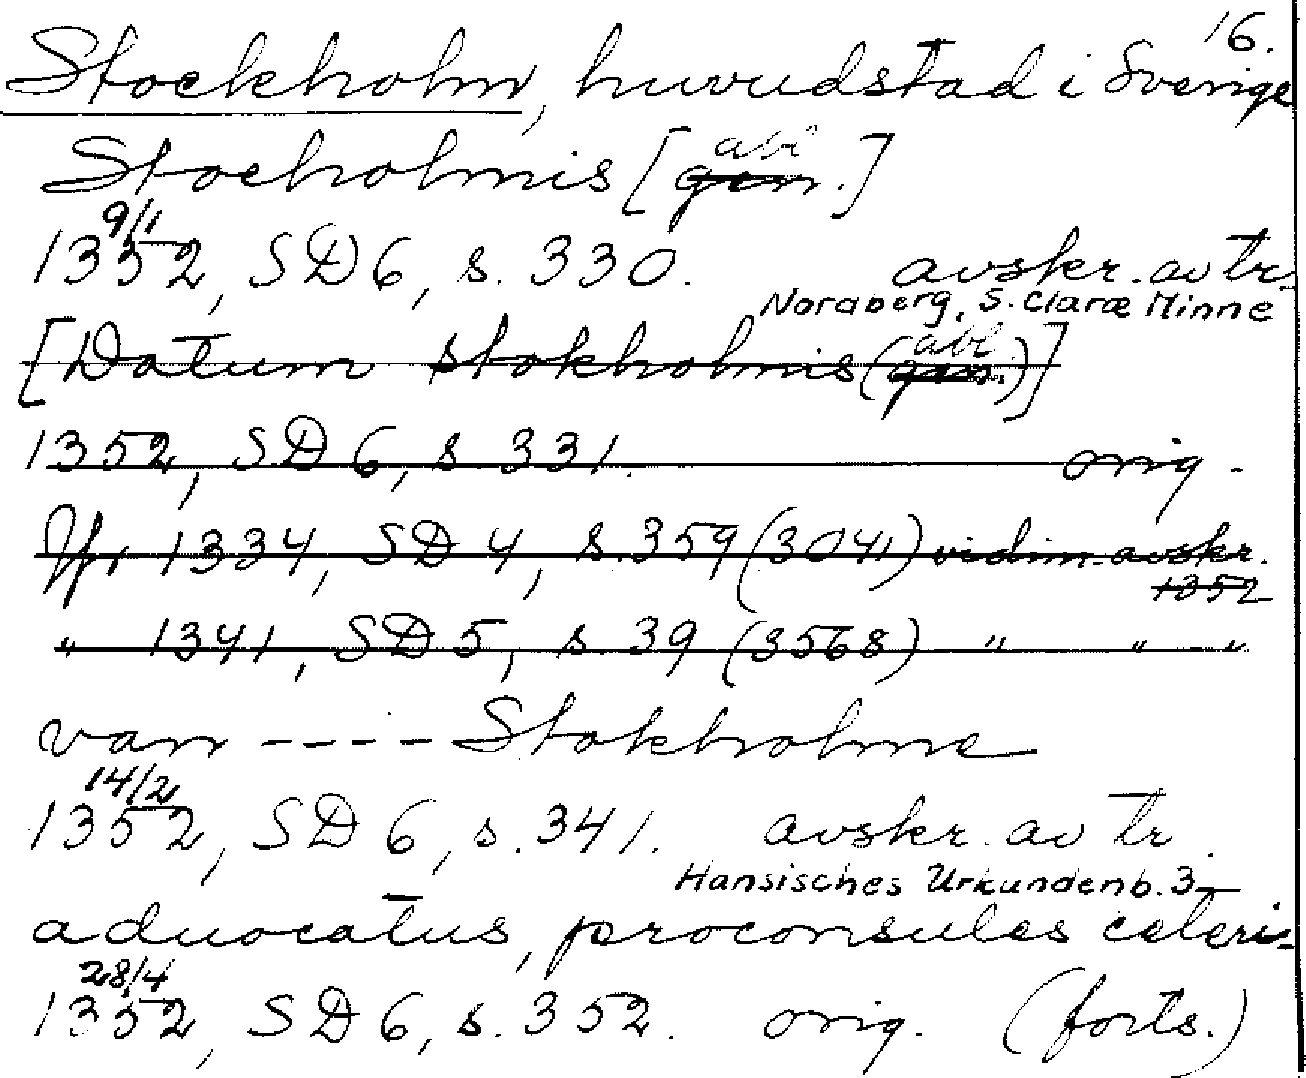 16.
Stockholm, huvudstad i Sverige
Stocholmis [gen. abl]
9/1
1352, SD 6, s. 330. avskr. av tr.
Nordberg, S. Claræ Minne
[Datum Stokholmis (gen. abl.)]
1352, SD 6, s 331. orig.
Jfr 1334, SD 4, s. 359 (3041) vidim. avskr.
1352
" 1341, SD 5, s. 39 (3568) " " "
van ---- Stokholme
14/2
1352, SD 6, s. 341. avskr. av tr.
Hansisches Urkundenb. 3
aduocatus, proconsules ceteri-
28/4
1352, SD 6, s. 352. orig. (forts.)